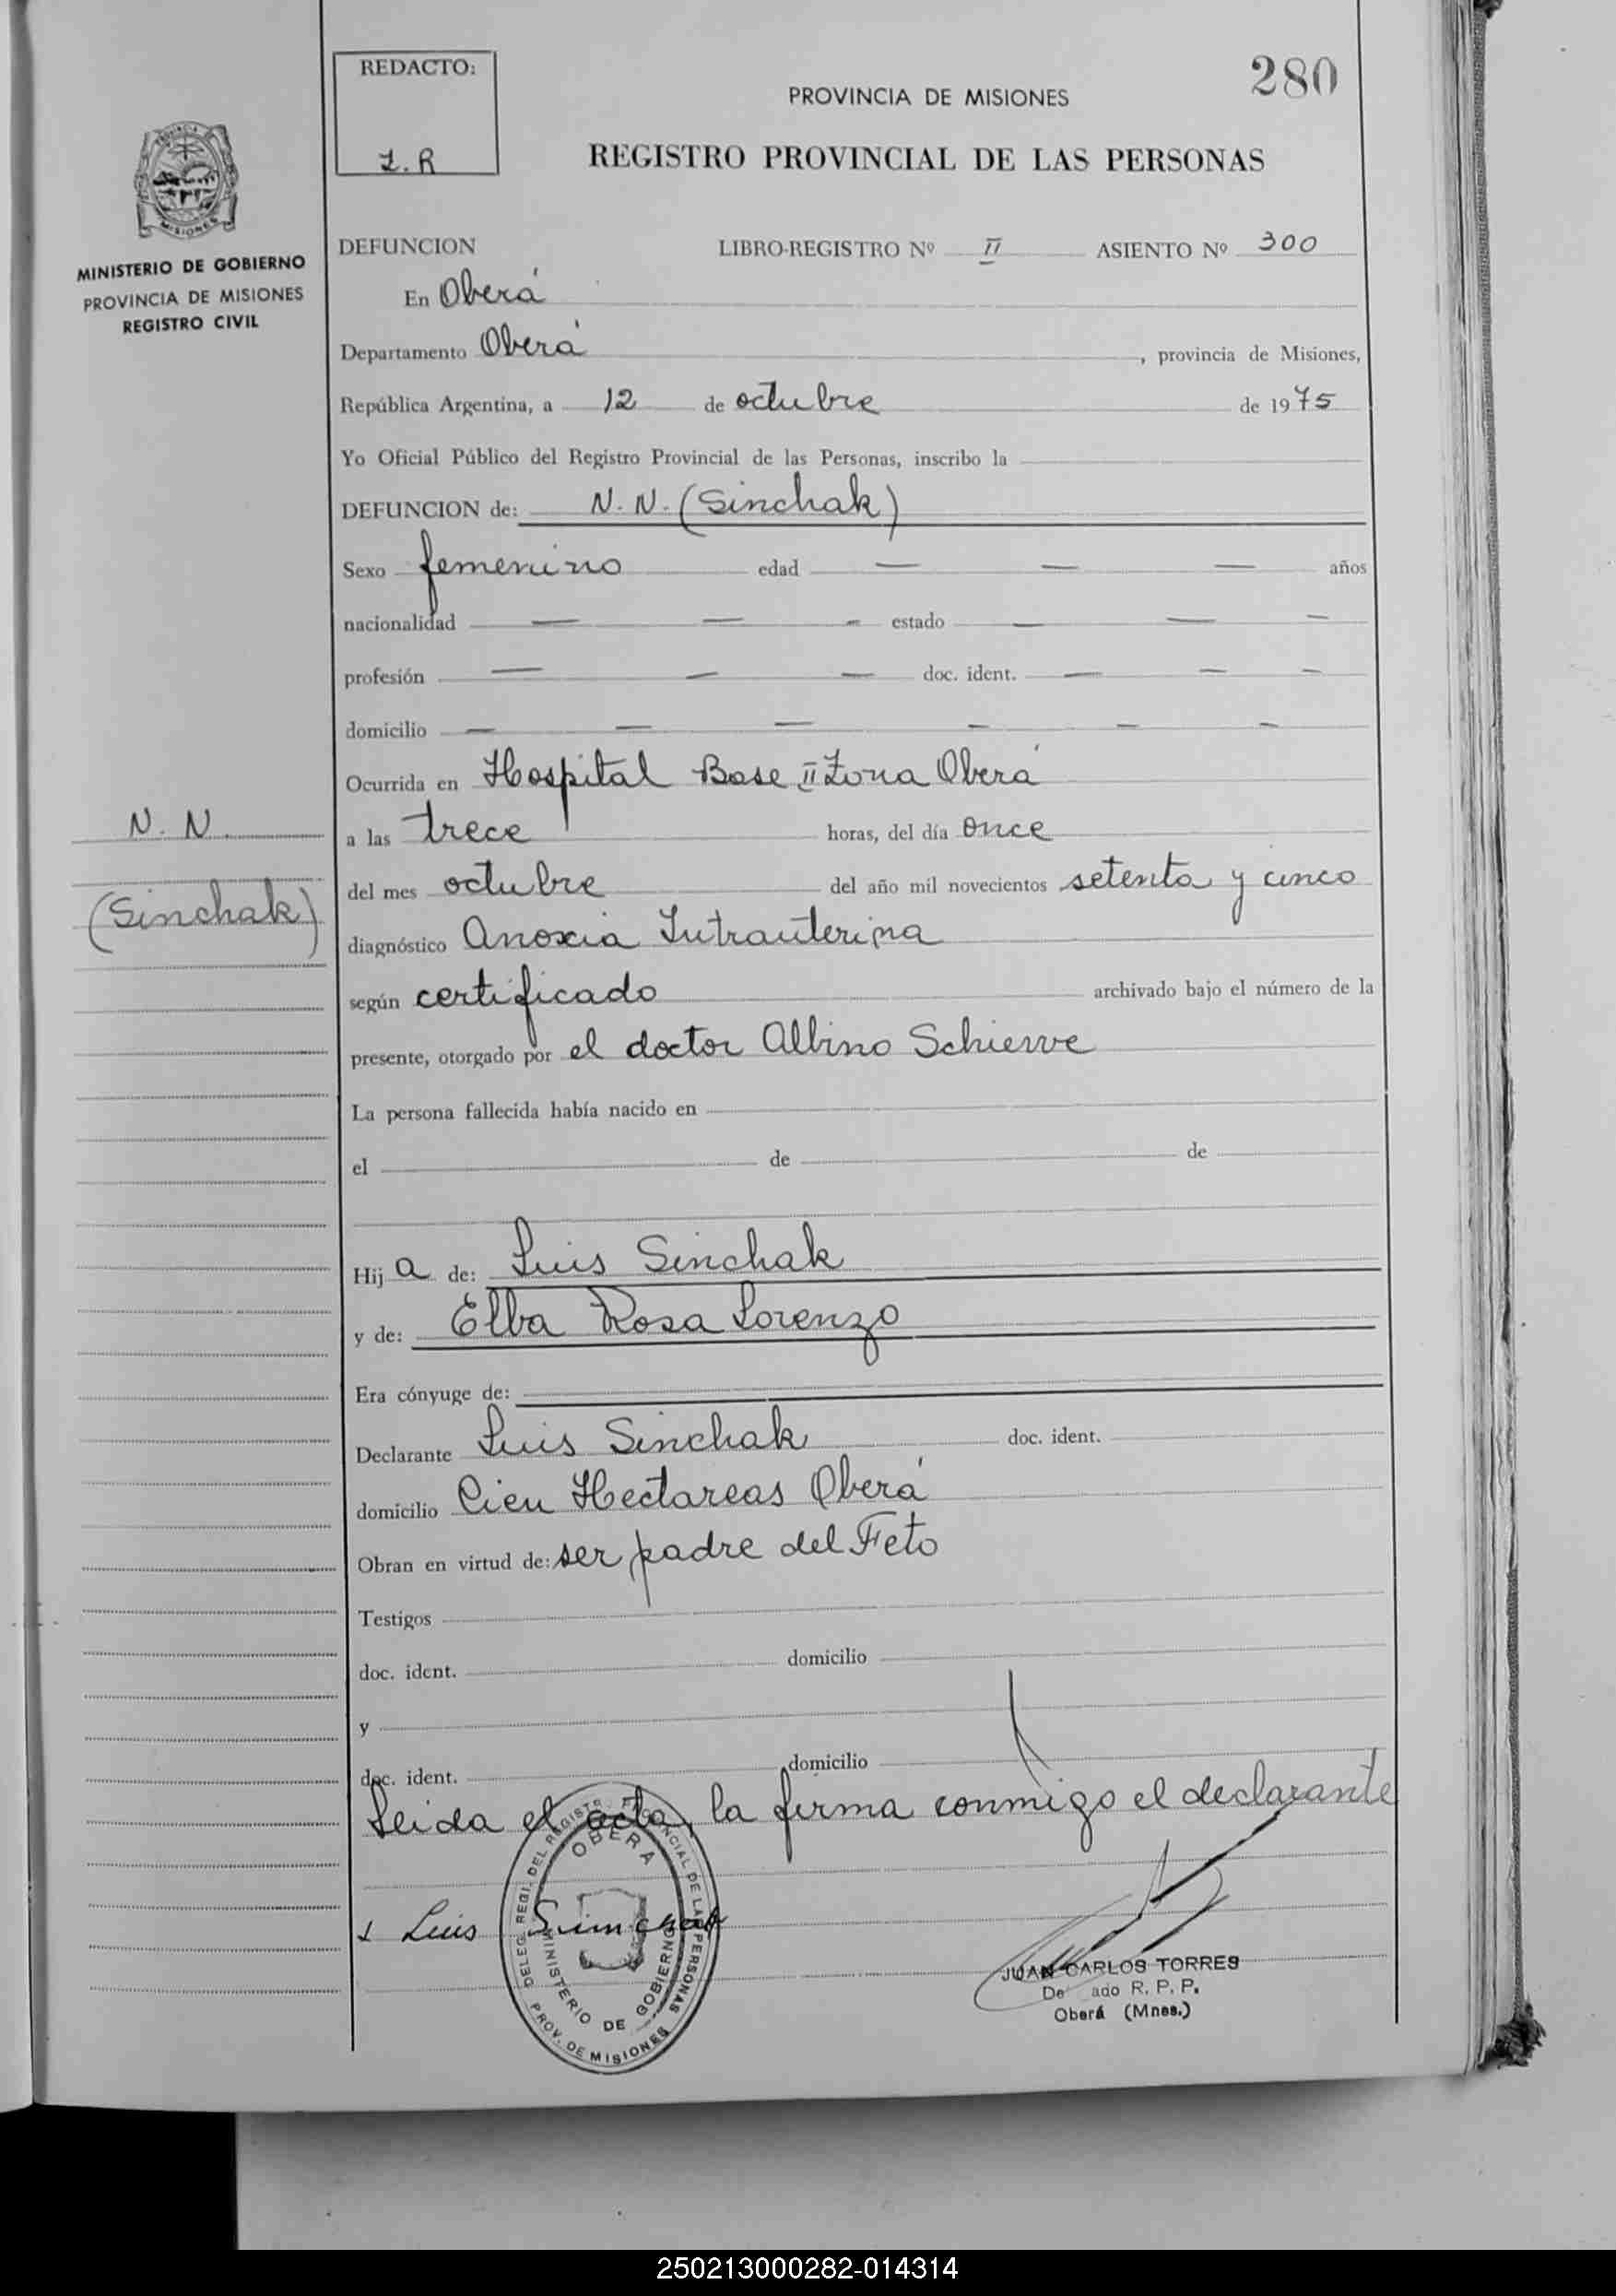 280
REDACTO:
Z.R
PROVINCIA DE MISIONES
REGISTRO PROVINCIAL DE LAS PERSONAS
MISIONES
MINISTERIO DE GOBIERNO
PROVINCIA DE MISIONES
REGISTRO CIVIL
DEFUNCION LIBRO-REGISTRO Nº II ASIENTO Nº 300
En Oberá
Departamento Oberá, provincia de Misiones,
República Argentina, a 12 de octubre de 1975
Yo Oficial Público del Registro Provincial de las Personas, inscribo la
DEFUNCION de: N.N. (Sinchak)
Sexo femenino edad — — — años
nacionalidad — — - estado — — —
profesión — — — doc. ident. — — —
domicilio — — — — — —
Ocurrida en Hospital Base II Zona Oberá
N. N.
a las trece horas, del día once
(Sinchak)
del mes octubre del año mil novecientos setenta y cinco
diagnóstico Anoxia Intrauterina
según certificado archivado bajo el número de la
presente, otorgado por el doctor Albino
La persona fallecida había nacido en
el de de
Hija de: Luis Sinchak
y de: Elba Rosa Lorenzo
Era cónyuge de:
Declarante Luis Sinchak doc. ident.
domicilio Cien Hectareas Oberá
Obran en virtud de: ser padre del Feto
Testigos
doc. ident. domicilio
y
doc. ident. domicilio
Leida el acta, la firma conmigo el declarante
Luis Simchak
DELEG. REGI. DEL REGISTR. PROVINCIAL DE LAS PERSONAS
OBERA
MINISTERIO DE GOBIERNO
PROV. DE MISIONES
JUAN CARLOS TORRES
De ado R. P. P.
Oberá (Mnes.)
250213000282-014314